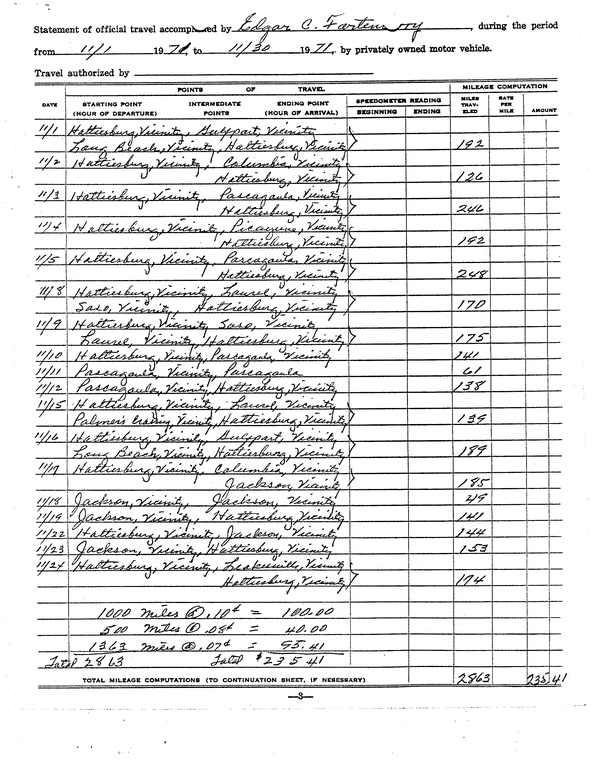 Statement of official travel accomplished by Edgar C. Fortenberry, during the period
from 11/1 1971, to 11/30 1971, by privately owned motor vehicle.
Travel authorized by
POINTS OF TRAVEL MILEAGE COMPUTATION
DATE STARTING POINT (HOUR OF DEPARTURE) INTERMEDIATE POINTS ENDING POINT (HOUR OF ARRIVAL) SPEEDOMETER READING BEGINNING ENDING MILES TRAV-ELED RATE PER MILE AMOUNT
11/1 Hattiesburg, Vicinity, Gulfport, Vicinity
Long Beach, Vicinity, Hattiesburg, Vicinity 192
11/2 Hattiesburg, Vicinity, Columbia, Vicinity
Hattiesburg, Vicinity 126
11/3 Hattiesburg, Vicinity, Pascagoula, Vicinity
Hattiesburg, Vicinity 246
11/4 Hattiesburg, Vicinity, Picayune, Vicinity
Hattiesburg, Vicinity 192
11/5 Hattiesburg, Vicinity, Pascagoula, Vicinity
Hattiesburg, Vicinity 248
11/8 Hattiesburg, Vicinity, Laurel, Vicinity
Soso, Vicinity, Hattiesburg, Vicinity 170
11/9 Hattiesburg, Vicinity Soso, Vicinity
Laurel, Vicinity, Hattiesburg, Vicinity 175
11/10 Hattiesburg, Vicinity, Pascagoula, Vicinity 141
11/11 Pascagoula, Vicinity, Pascagoula 61
11/12 Pascagoula, Vicinity, Hattiesburg, Vicinity 138
11/15 Hattiesburg, Vicinity, Laurel, Vicinity
Palmers Crossing, Vicinity, Hattiesburg, Vicinity 139
11/16 Hattiesburg, Vicinity, Gulfport, Vicinity
Long Beach, Vicinity, Hattiesburg, Vicinity 189
11/17 Hattiesburg, Vicinity, Columbia, Vicinity
Jackson, Vicinity 185
11/18 Jackson, Vicinity, Jackson, Vicinity 49
11/19 Jackson, Vicinity, Hattiesburg, Vicinity 141
11/22 Hattiesburg, Vicinity, Jackson, Vicinity 144
11/23 Jackson, Vicinity, Hattiesburg, Vicinity 153
11/24 Hattiesburg, Vicinity, Leakesville, Vicinity
Hattiesburg, Vicinity 174
1000 miles @ .10¢ = 100.00
500 miles @ .08¢ = 40.00
1363 miles @ .07¢ = 95.41
Total 2863 Total $235.41
TOTAL MILEAGE COMPUTATIONS (TO CONTINUATION SHEET, IF NESESSARY) 2863 235.41
—3—